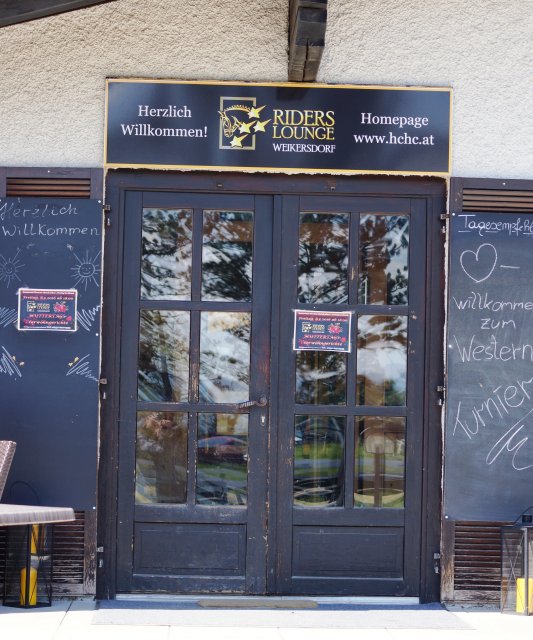 Herzlich
Willkommen!
RIDERS
LOUNGE
WEIKERSDORF
Homepage
www.hchc.at
Herzlich
Willkommen
MUTTERTAG
RIDERS
LOUNGE
MUTTERTAG
Willkommen
zum
Western
Turnier